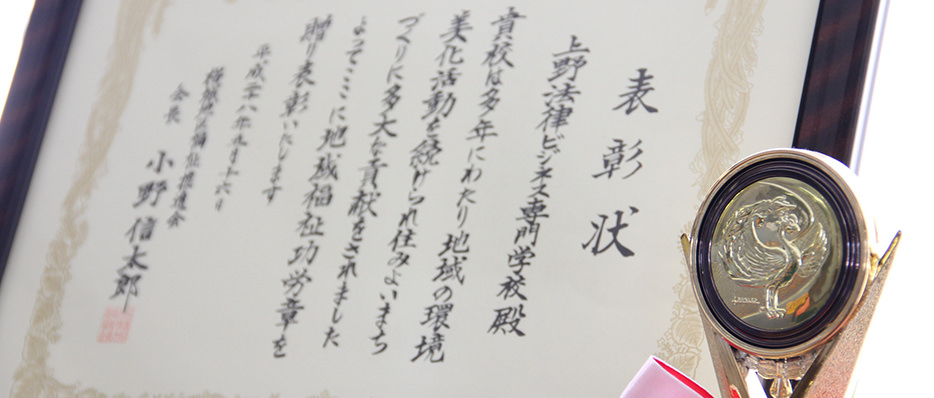 表彰状
上野法律ビジネス専門学校殿
貴校は多年にわたり地域の環境
美化活動を続けられ住みよいまち
づくりに多大な貢献をされました
よってここに地域福祉功労章を
贈り表彰いたします
平成二八年九月十六日
福祉推進会
会長 小野信太郎